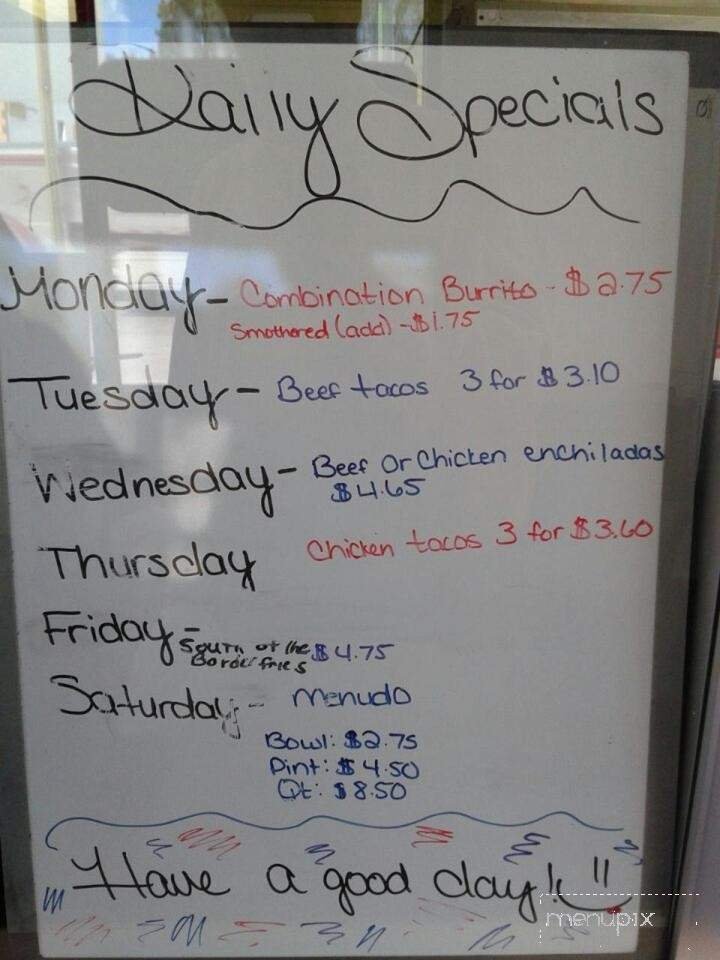 Daily Specials
Monday- Combination Burrito - $2.75
Smothered (add) - $1.75
Tuesday - Beef tacos 3 for $3.10
Wednesday - Beef Or Chicken enchiladas
$4.65
Thursday Chicken tacos 3 for $3.60
Friday - South of the $4.75
Border fries
Saturday - Menudo
Bowl: $2.75
Pint: $4.50
Qt: $8.50
Have a good day!
menupix